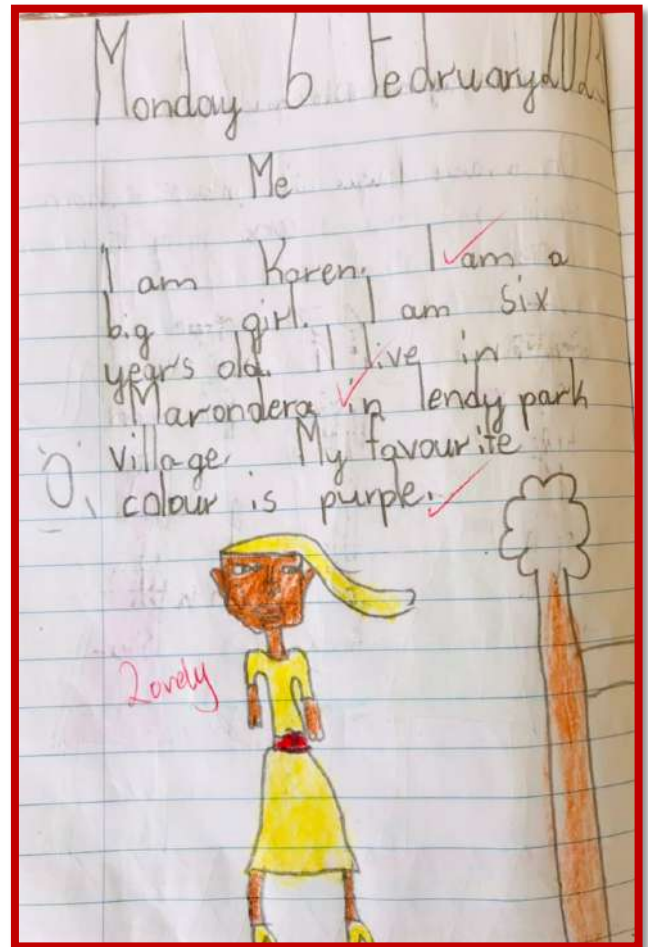 Monday 6 Fedruary 2023
Me
I am Karen. I am a
big girl. I am six
years old. I live in
Marondera in lendy park
village. My favourite
colour is purple.
Lovely